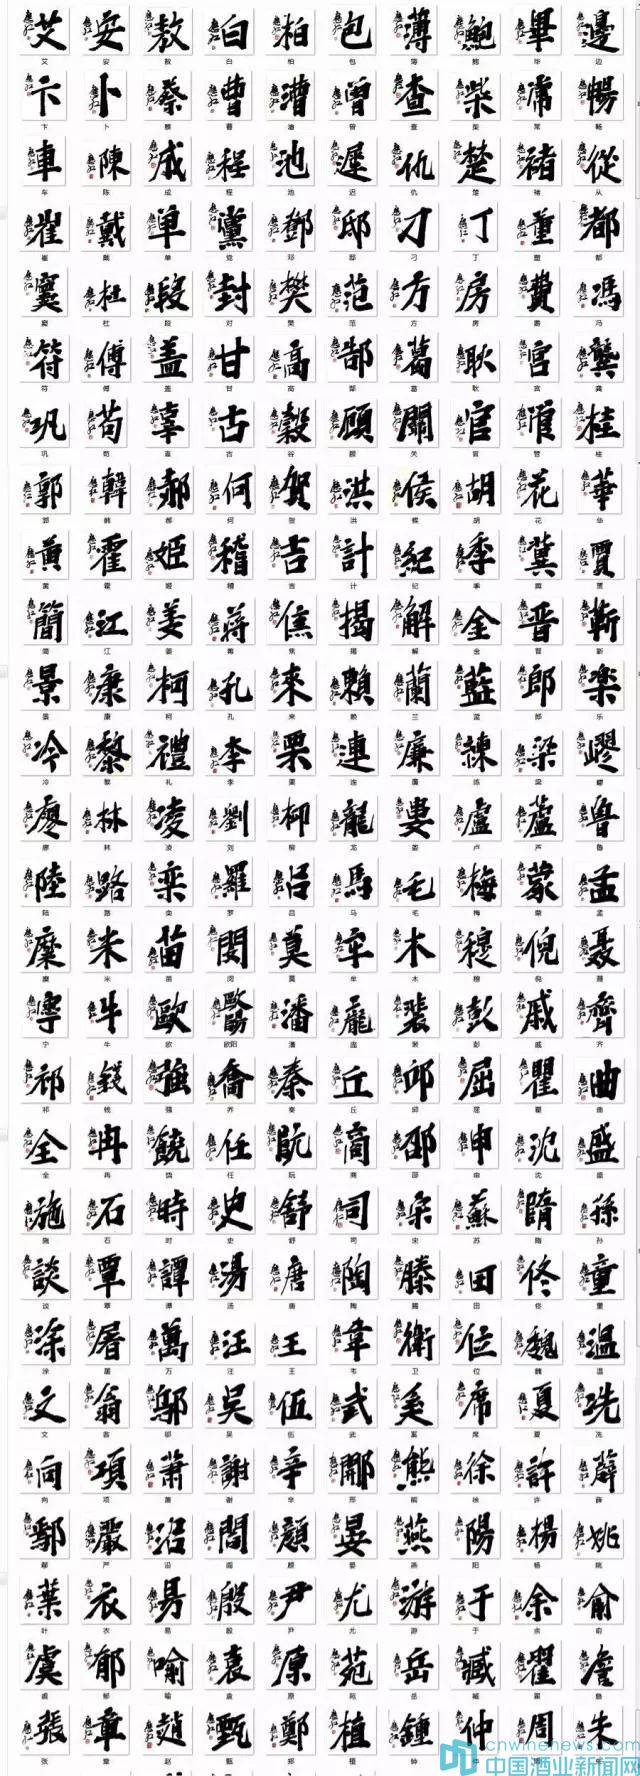 艾 安 敖 白 柏 包 薄 鮑 畢 邊
艾 安 敖 白 柏 包 薄 鲍 毕 边
卞 卜 蔡 曹 漕 曾 查 柴 常 暢
卞 卜 蔡 曹 漕 曾 查 柴 常 畅
車 陳 成 程 池 遲 仇 楚 褚 從
车 陈 成 程 池 迟 仇 楚 褚 从
崔 戴 单 黨 鄧 邸 刁 丁 董 都
崔 戴 单 党 邓 邸 刁 丁 董 都
竇 杜 段 封 樊 范 方 房 費 馮
窦 杜 段 封 樊 范 方 房 费 冯
符 傅 盖 甘 高 郜 葛 耿 宫 龔
符 傅 盖 甘 高 郜 葛 耿 宫 龚
巩 苟 辜 古 穀 顧 關 官 管 桂
巩 苟 辜 古 谷 顾 关 官 管 桂
郭 韓 郝 何 賀 洪 侯 胡 花 華
郭 韩 郝 何 贺 洪 候 胡 花 华
黄 霍 姬 稽 吉 計 紀 季 冀 賈
黄 霍 姬 稽 吉 计 纪 季 冀 贾
簡 江 姜 蒋 焦 揭 解 金 晋 靳
简 江 姜 蒋 焦 揭 解 金 晋 靳
景 康 柯 孔 來 賴 蘭 藍 郎 楽
景 康 柯 孔 来 赖 兰 蓝 郎 乐
冷 黎 禮 李 栗 連 廉 練 梁 繆
冷 黎 礼 李 栗 连 廉 练 梁
廖 林 凌 劉 柳 龍 婁 盧 蘆 魯
廖 林 凌 刘 柳 龙 娄 卢 芦 鲁
陸 路 栾 羅 吕 馬 毛 梅 蒙 孟
陆 路 栾 罗 吕 马 毛 梅 蒙 孟
糜 米 苗 閔 莫 牟 木 穆 倪 聂
糜 米 苗 闵 莫 牟 木 穆 倪 聂
寧 牛 歐 歐陽 潘 龐 裴 彭 戚 齊
宁 牛 欧 欧阳 潘 庞 裴 彭 戚 齐
祁 錢 強 喬 秦 丘 邱 屈 瞿 曲
祁 钱 强 乔 秦 丘 邱 屈 瞿 曲
全 冉 饒 任 阮 商 邵 申 沈 盛
全 冉 饶 任 阮 商 邵 申 沈 盛
施 石 時 史 舒 司 宋 蘇 隋 孫
施 石 时 史 舒 司 宋 苏 隋 孙
談 覃 譚 湯 唐 陶 滕 田 佟 童
谈 覃 谭 汤 唐 陶 田 佟 童
涂 屠 萬 汪 王 韋 衛 位 魏 温
涂 屠 万 汪 王 韦 卫 位 魏 温
文 翁 鄔 吴 伍 武 奚 席 夏 冼
文 翁 邬 吴 伍 武 奚 席 夏 冼
向 項 蕭 謝 辛 邢 熊 徐 許 薛
向 项 萧 谢 辛 邢 熊 徐 许 薛
鄢 嚴 沿 閻 顔 晏 燕 陽 楊 姚
鄢 严 沿 阎 颜 晏 燕 阳 杨 姚
葉 衣 易 殷 尹 尤 游 于 余 俞
叶 衣 易 殷 尹 尤 游 于 余 俞
虞 郁 喻 袁 原 苑 岳 臧 翟 詹
虞 郁 喻 袁 原 苑 岳 臧 翟 詹
張 章 趙 甄 鄭 植 鍾 仲 周 朱
张 章 赵 甄 郑 植 钟
cnwinenews.com
中国酒业新闻网